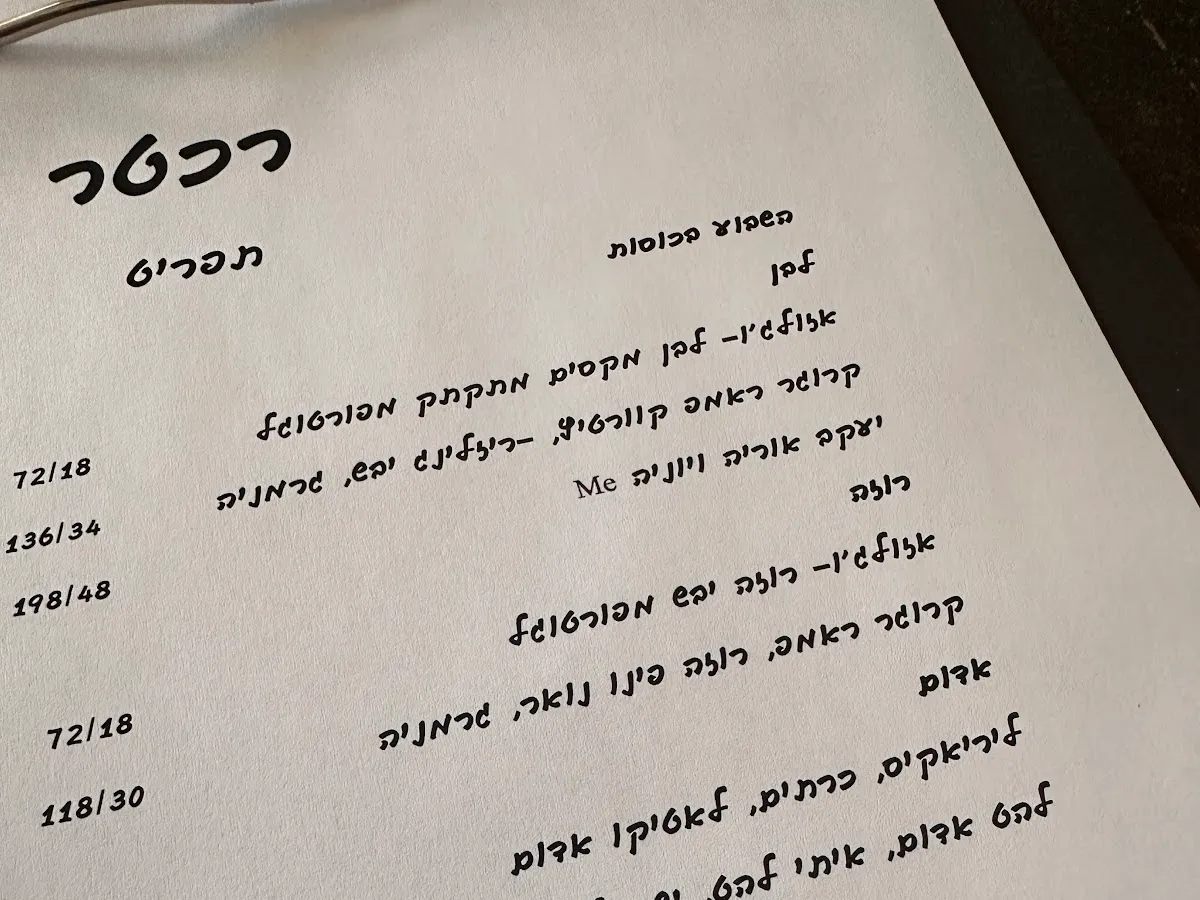 רכטר
תפריט
השבוע בכוסות
לבן
אזולג'ו– לבן מקסים מתקתק מפורטוגל 72/18
קרוגר ראמפ קוורטיץ, –ריזלינג יבש, גרמניה 136/34
יעקב אוריה ויוניה Me 198/48
רוזה
אזולג'ו– רוזה יבש מפורטוגל 72/18
קרוגר ראמפ, רוזה פינו נואר, גרמניה 118/30
אדום
ליריאקיס, כרתים, לאטיקו אדום
להט אדום, איתי להט,